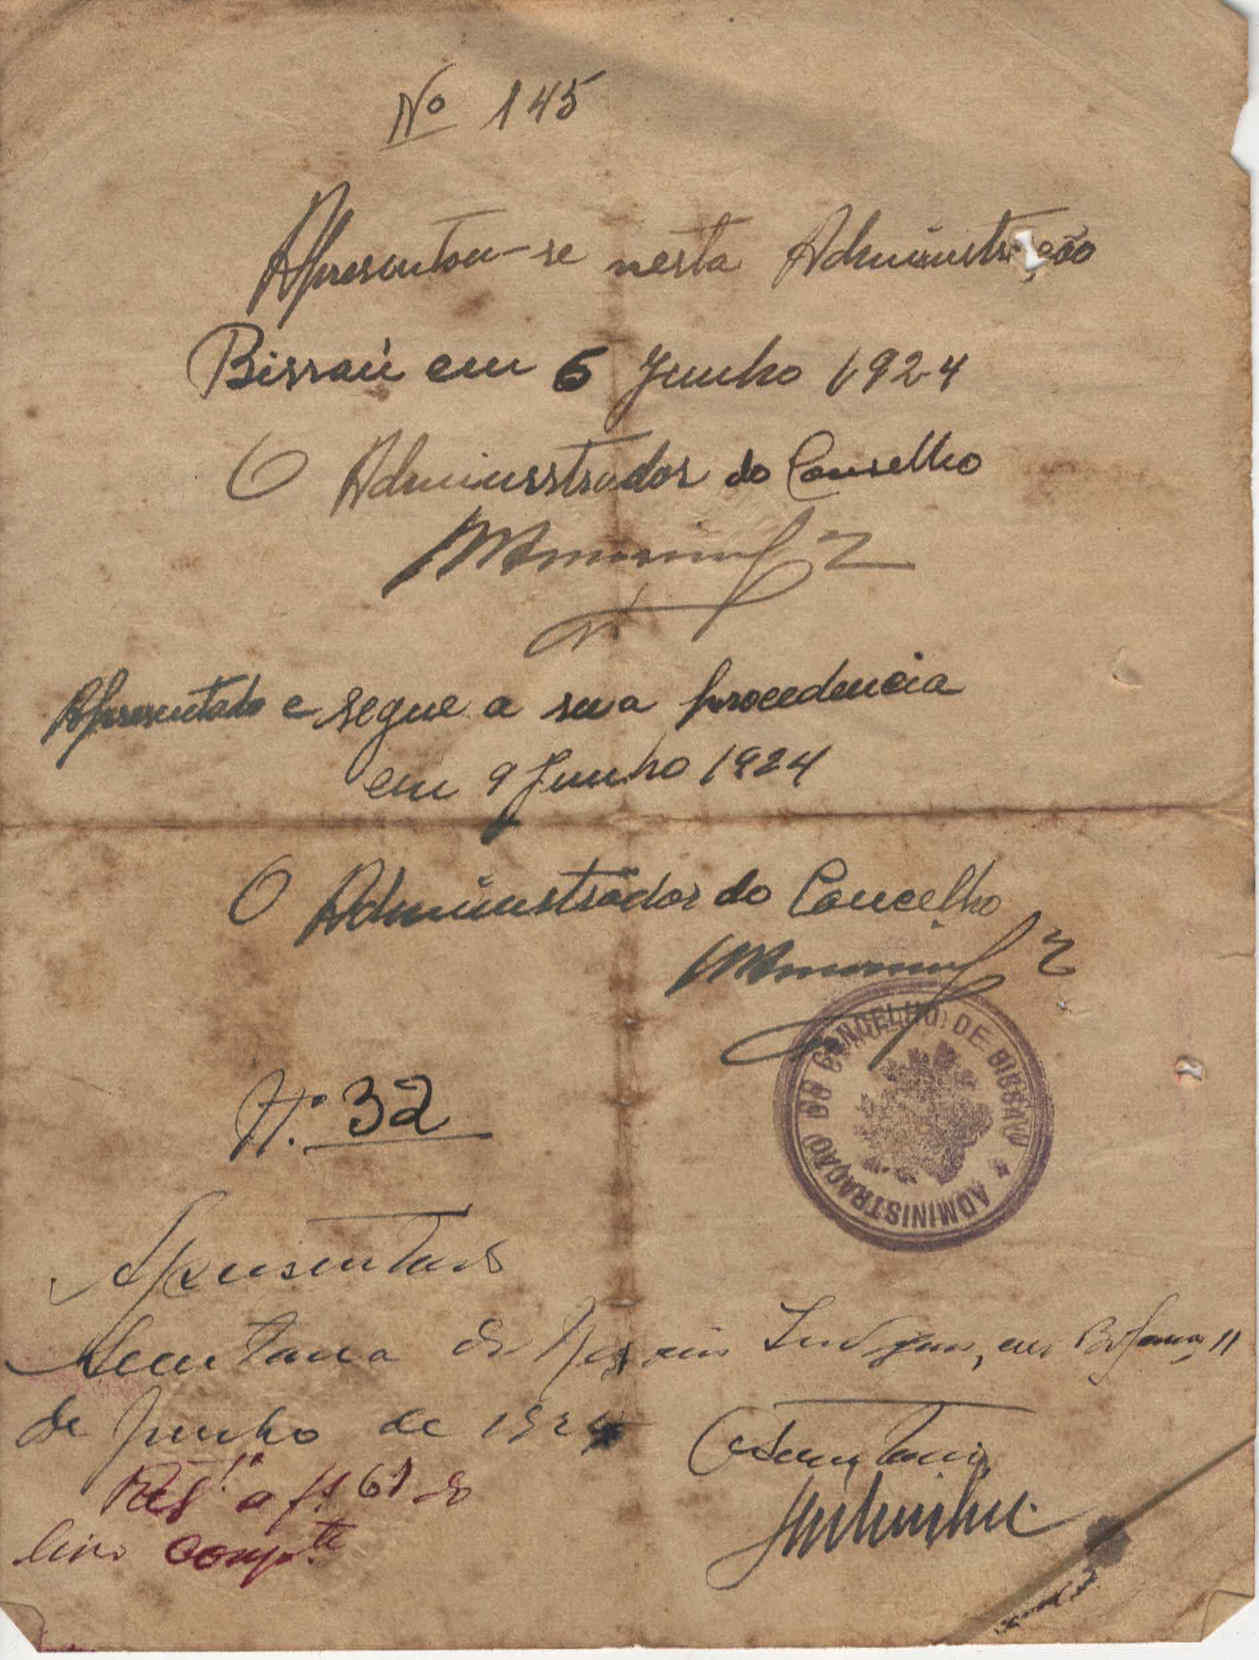 Nº 145
Apresentou-se nesta Administração
Bissau em 6 Junho 1924
O Administrador do Conselho
Apresentado e segue a sua procedencia
em 9 Junho 1924
O Administrador do Concelho
ADMINISTRAÇÃO DO CONCELHO DE BISSAU
N.º 32
Apresentado
Secretaria de Neg em Bolama, 11
de Junho de 1924
O Secretario
Reg.do a fs 61 do
livro comp.te